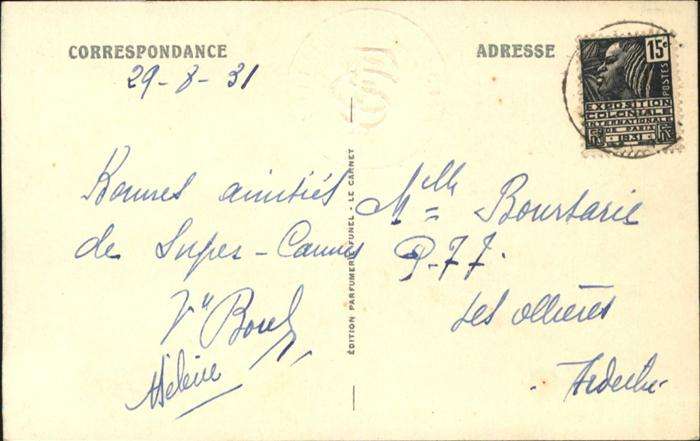 CORRESPONDANCE
29-8-31
Bonnes amitiés
de Super-Cannes
Vve Borel
Hélène
ÉDITION PARFUMERIE FUNEL - LE CANNET
ADRESSE
15c
POSTES
EXPOSITION
COLONIALE
INTERNATIONALE
DE PARIS
1931
Mlle Boursarie
P.T.T.
Les Ollières
Ardèche